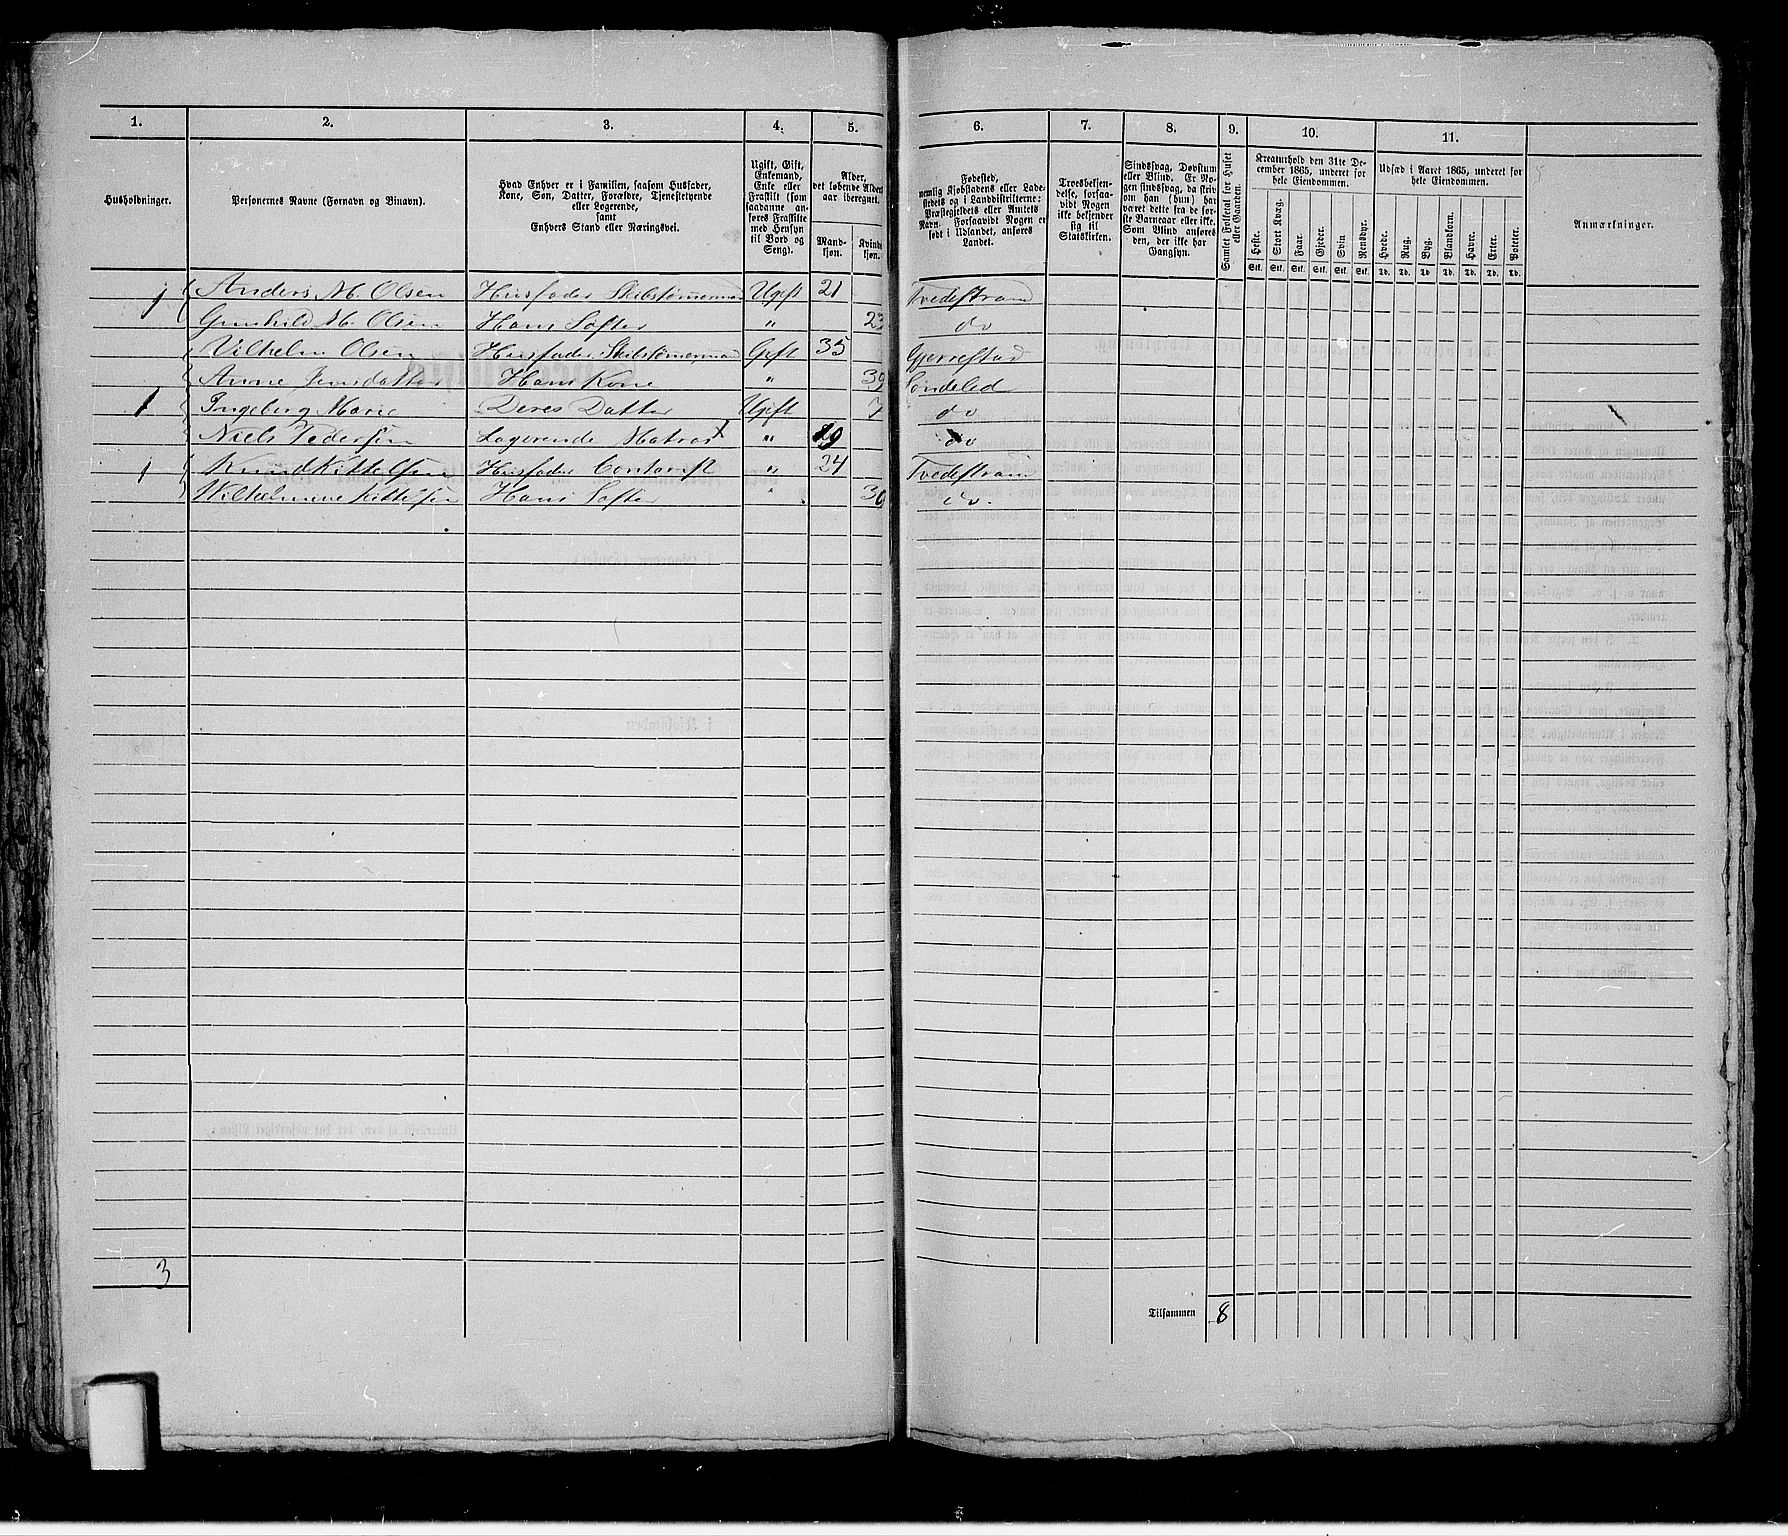 1. 2. 3. 4. 5. 6. 7. 8. 9. 10. 11.
Husholdninger.
Personernes Navne (Fornavn og Binavn).
Hvad Enhver er i Familien, saasom Husfader,
Kone, Søn, Datter, Forældre, Tjenestetyende
eller Logerende,
samt
Enhvers Stand eller Næringsvei.
Ugift, Gift,
Enkemand,
Enke eller
Fraskilt (som
saadanne an-
føres Fraskilte
med Hensyn
til Bord og
Seng).
Alder,
det løbende Alders-
aar iberegnet.
Mand-
kjøn.
Kvinde-
kjøn.
Fødested,
nemlig Kjøbstadens eller Lade-
stedets og i Landdistrikterne:
Præstegjeldets eller Amtets
Navn. Forsaavidt Nogen er
født i Udlandet, anføres
Landet.
Troesbekjen-
delse, forsaa-
vidt Nogen
ikke bekjender
sig til
Statskirken.
Sindssvag, Døvstum
eller Blind. Er No-
gen sindssvag, da skriv
om han (hun) har
været dette fra de før-
ste Barneaar eller ikke.
Som Blind anføres
den, der ikke har
Gangsyn.
Samlet Folketal for Huset
eller Gaarden.
Kreaturhold den 31te De-
cember 1865, underet for
hele Eiendommen.
Heste. Stort Kvæg. Faar. Gjeder. Svin. Rensdyr.
Stk. Stk. Stk. Stk. Stk. Stk.
Udsæd i Aaret 1865, underet for
hele Eiendommen.
Hvede. Rug. Byg. Blandkorn. Havre. Erter. Poteter.
Td. Td. Td. Td. Td. Td. Td.
Anmærkninger.
1 Anders M. Olsen Husfader Skibstømermand Ugift 21 Tvedestrand
Gunhild M. Olsen Hans Søster " 23 do
Vilhelm Olsen Husfader Skibstømermand Gift 35 Gjerrestad
Anne Jensdatter Hans Kone " 39 Søndeled
1 Ingeborg Marie Deres Datter Ugift 7 do
Niels Pedersen Logerende Matros " 19 do
1 Knud Kittelsen Husfader Contorist " 24 Tvedestrand
Wilhelmine Kittelsen Hans Søster " 30 do.
3
Tilsammen 8